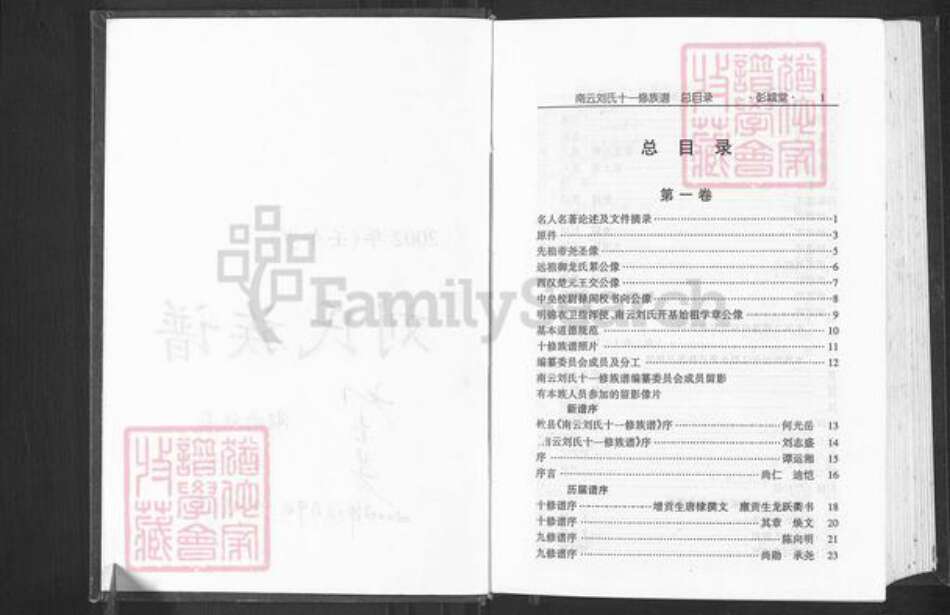 南云刘氏十一修族谱 总目录 ·彭城堂· 1
总 目 录
第 一 卷
名人名著论述及文件摘录 1
原件 3
先祖帝尧圣像 5
远祖御龙氏累公像 6
西汉楚元王交公像 7
中垒校尉禄阁校书向公像 8
明锦衣卫指挥使、南云刘氏开基始祖学章公像 9
基本道德规范 10
十修族谱照片 11
编纂委员会成员及分工 12
南云刘氏十一修族谱编纂委员会成员留影
有本族人员参加的留影像片
新谱序
攸县《南云刘氏十一修族谱》序 何光岳 13
云刘氏十一修族谱》序 刘志盛 14
序 谭运湘 15
序言 尚仁 迪恺 16
历届谱序
十修谱序 增贡生唐棣撰文 廪贡生龙跃衢书 18
十修谱序 其章 焕文 20
九修谱序 陈向明 21
九修谱序 尚勋 承尧 23
FamilySearch
刘氏族谱